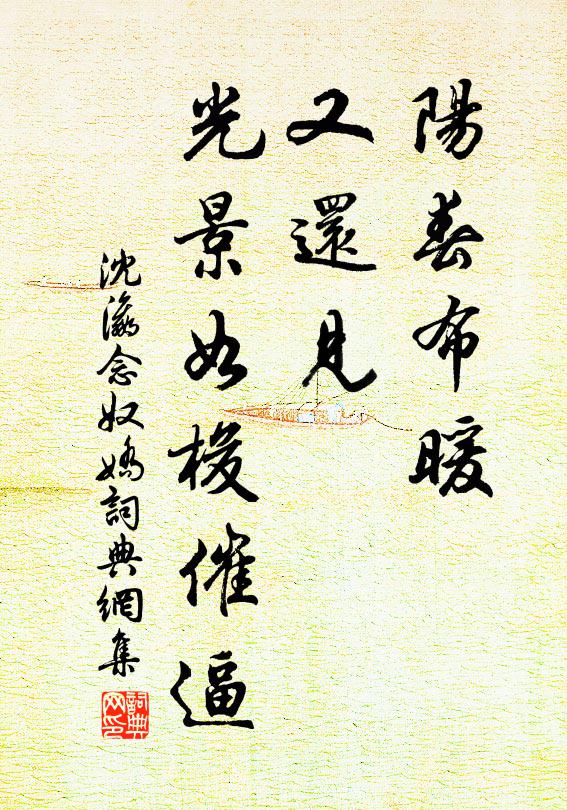 陽春布暖
又還見
光景如梭催逼
沈瀛念奴嬌詞典網集
詞典網印